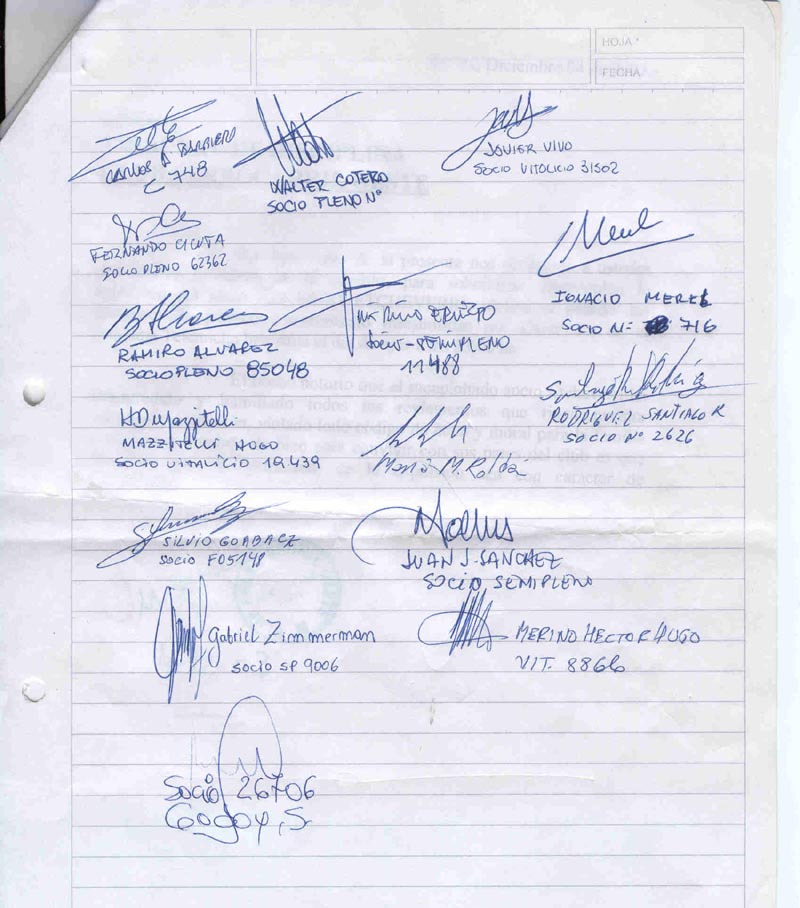 HOJA Nº
FECHA
CARLOS A. BARBIERI
C 748
WALTER COTERO
SOCIO PLENO Nº
JAVIER VIVO
SOCIO VITALICIO 31502
FERNANDO CICUTA
SOCIO PLENO 62362
IGNACIO MEREL
SOCIO Nº 716
RAMIRO ALVAREZ
SOCIO PLENO 85048
ERNESTO
SOCIO-SEMIPLENO
11488
RODRIGUEZ SANTIAGO R
SOCIO Nº 2626
HDMazzitelli
MAZZITELLI HUGO
SOCIO VITALICIO 19.439
Mario M. Roldan
SILVIO GORBACZ
SOCIO F05148
JUAN J. SANCHEZ
SOCIO SEMIPLENO
Gabriel Zimmerman
SOCIO SP 9006
MERINO HECTOR HUGO
VIT. 8866
SOCIO 26706
Godoy, S.